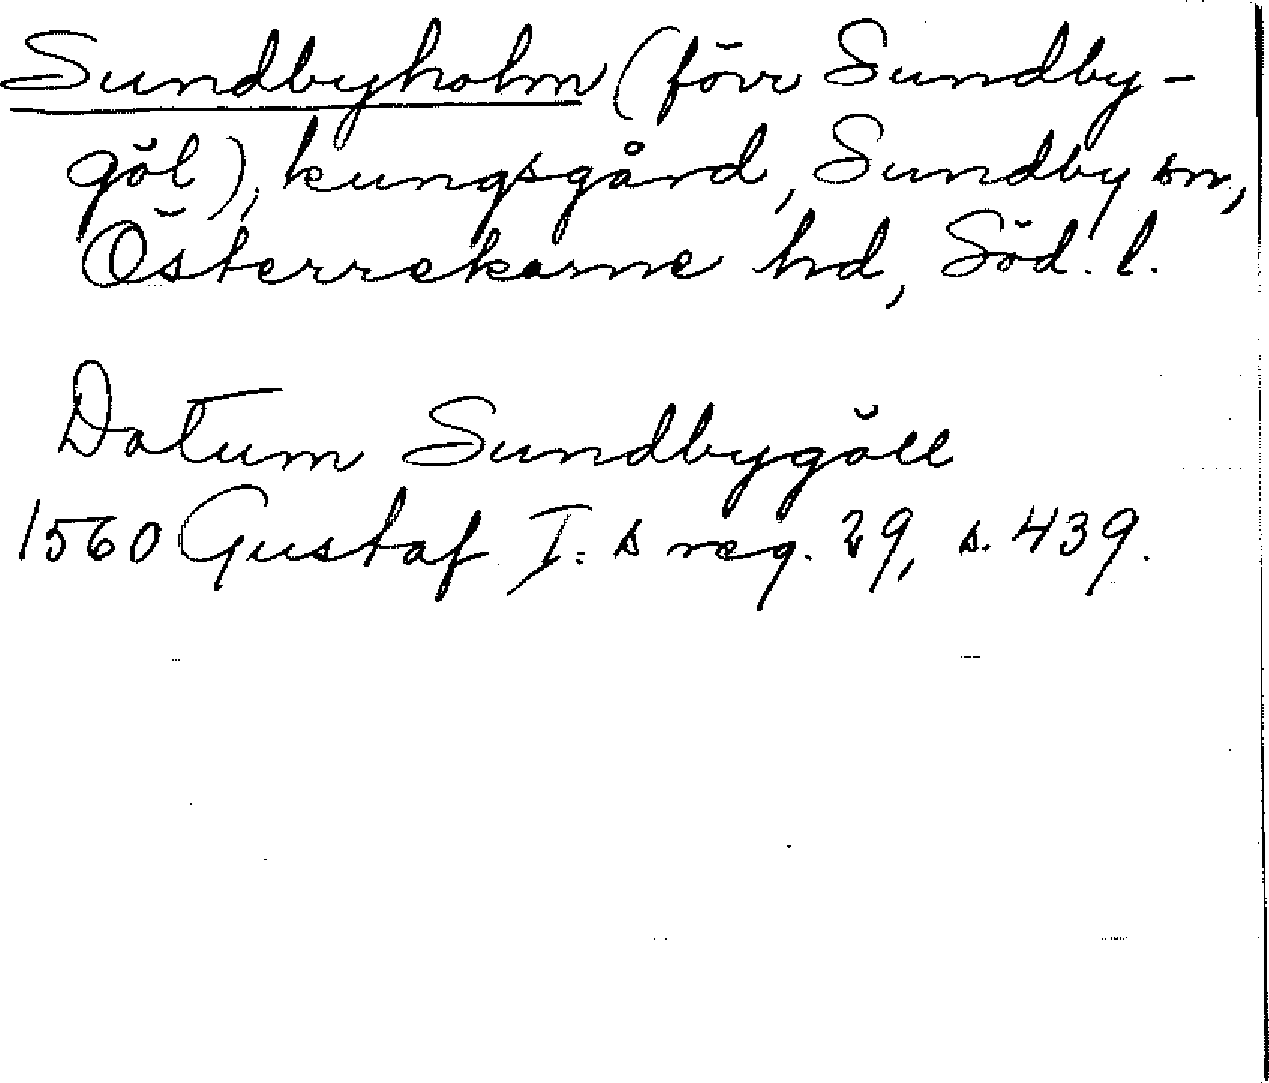 Sundbyholm (förr Sundby-
göl), kungsgård, Sundby sn,
Österrekarne hd, Söd. l.
Datum Sundbygöll
1560 Gustaf I:s reg. 29, s. 439.